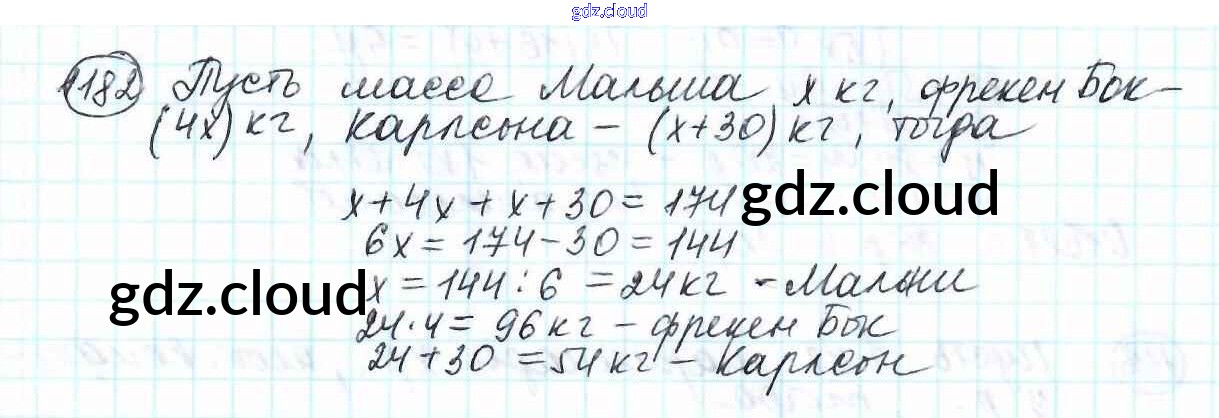 gdz.cloud
1182 Пусть масса Малыша x кг, фрекен Бок –
(4x) кг, Карлсона – (x+30) кг, тогда
x + 4x + x + 30 = 174
gdz.cloud
6x = 174 - 30 = 144
x = 144 : 6 = 24 кг - Малыш
gdz.cloud
24 · 4 = 96 кг – фрекен Бок
24 + 30 = 54 кг – Карлсон